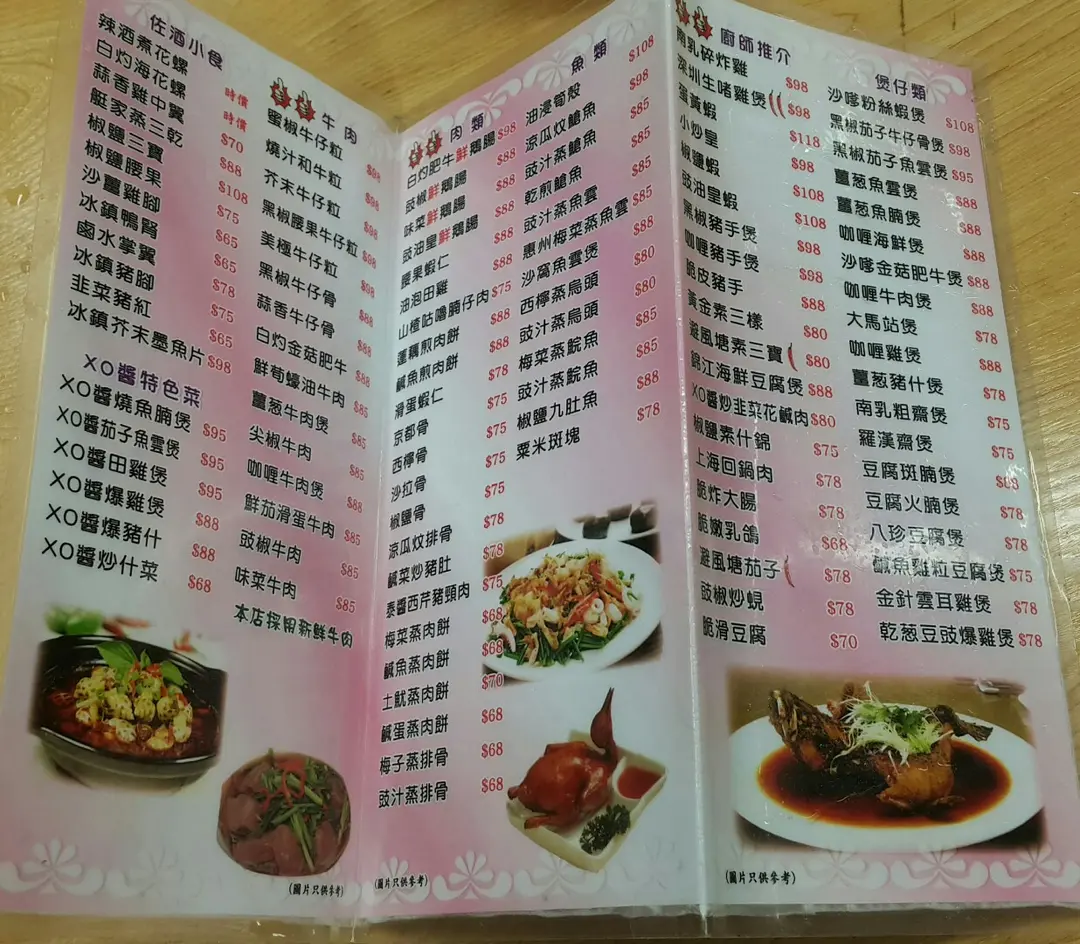 佐酒小食
辣酒煮花螺 時價
白灼海花螺 時價
蒜香雞中翼 $70
艇家蒸三乾 $88
椒鹽三寶 $108
椒鹽腰果 $75
沙薑雞腳 $65
冰鎮鴨腎 $65
鹵水掌翼 $78
冰鎮豬腳 $75
韭菜豬紅 $65
冰鎮芥末墨魚片 $98
XO醬特色菜
XO醬燒魚腩煲 $95
XO醬茄子魚雲煲 $95
XO醬田雞煲 $95
XO醬爆雞煲 $88
XO醬爆豬什 $88
XO醬炒什菜 $68
牛肉
蜜椒牛仔粒 $98
燒汁和牛粒 $98
芥末牛仔粒 $98
黑椒腰果牛仔粒 $98
美極牛仔粒 $98
黑椒牛仔骨 $88
蒜香牛仔骨 $88
白灼金菇肥牛 $88
鮮荀蠔油牛肉 $85
薑葱牛肉煲 $85
尖椒牛肉 $85
咖喱牛肉煲 $88
鮮茄滑蛋牛肉 $85
豉椒牛肉 $85
味菜牛肉 $85
本店採用新鮮牛肉
(圖片只供參考)
肉類
白灼肥牛鮮鵝腸 $98
豉椒鮮鵝腸 $88
味菜鮮鵝腸 $88
豉油皇鮮鵝腸 $88
腰果蝦仁 $88
油泡田雞 $88
山楂咕嚕腩仔肉 $75
蓮藕煎肉餅 $88
鹹魚煎肉餅 $88
滑蛋蝦仁 $78
京都骨 $75
西檸骨 $75
沙拉骨 $75
椒鹽骨 $75
涼瓜炆排骨 $78
鹹菜炒豬肚 $78
泰醬西芹豬頸肉 $75
梅菜蒸肉餅 $68
鹹魚蒸肉餅 $68
土魷蒸肉餅 $70
鹹蛋蒸肉餅 $68
梅子蒸排骨 $68
豉汁蒸排骨 $68
(圖片只供參考)
魚類
油浸荀殼 $108
涼瓜炆鎗魚 $98
豉汁蒸鎗魚 $85
乾煎鎗魚 $85
豉汁蒸魚雲 $85
惠州梅菜蒸魚雲 $85
沙窩魚雲煲 $88
西檸蒸烏頭 $80
豉汁蒸烏頭 $80
梅菜蒸鯇魚 $85
豉汁蒸鯇魚 $85
椒鹽九肚魚 $88
粟米斑塊 $78
廚師推介
南乳碎炸雞 $98
深圳生啫雞煲 $98
蛋黃蝦 $118
小炒皇 $98
椒鹽蝦 $108
豉油皇蝦 $108
黑椒豬手煲 $98
咖喱豬手煲 $98
脆皮豬手 $88
黃金素三樣 $80
避風塘素三寶 $80
錦江海鮮豆腐煲 $88
XO醬炒韭菜花鹹肉 $80
椒鹽素什錦 $75
上海回鍋肉 $78
脆炸大腸 $78
脆嫩乳鴿 $68
避風塘茄子 $78
豉椒炒蜆 $78
脆滑豆腐 $70
煲仔類
沙嗲粉絲蝦煲 $108
黑椒茄子牛仔骨煲 $98
黑椒茄子魚雲煲 $95
薑葱魚雲煲 $88
薑葱魚腩煲 $88
咖喱海鮮煲 $88
沙嗲金菇肥牛煲 $88
咖喱牛肉煲 $88
大馬站煲 $78
咖喱雞煲 $88
薑葱豬什煲 $78
南乳粗齋煲 $75
羅漢齋煲 $75
豆腐斑腩煲
豆腐火腩煲 $78
八珍豆腐煲 $78
鹹魚雞粒豆腐煲 $75
金針雲耳雞煲 $78
乾葱豆豉爆雞煲 $78
(圖片只供參考)